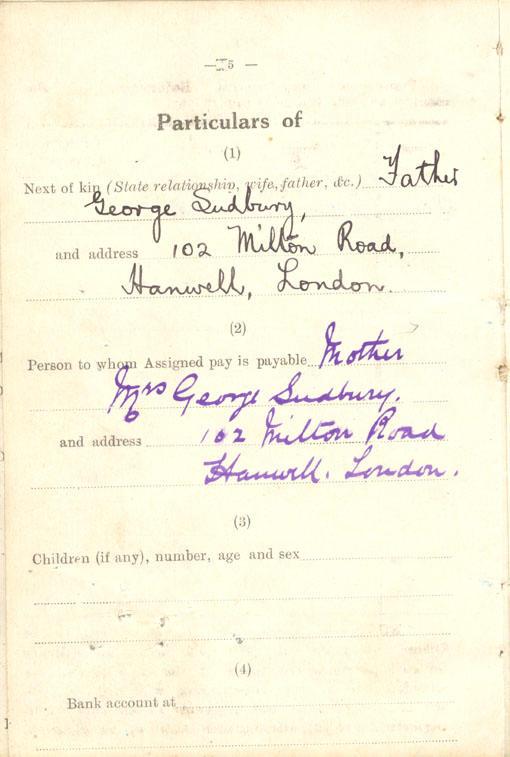 — 5 —
Particulars of
(1)
Next of kin (State relationship, wife, father, &c.) Father
George Sudbury,
and address 102 Milton Road,
Hanwell, London.
(2)
Person to whom Assigned pay is payable Mother
Mrs George Sudbury.
and address 102 Milton Road
Hanwell. London.
(3)
Children (if any), number, age and sex
(4)
Bank account at